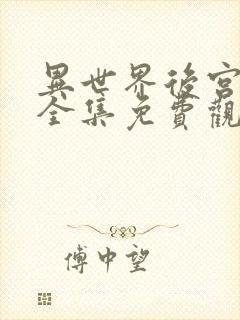 異世界後宮
全集免費觀
傅中望